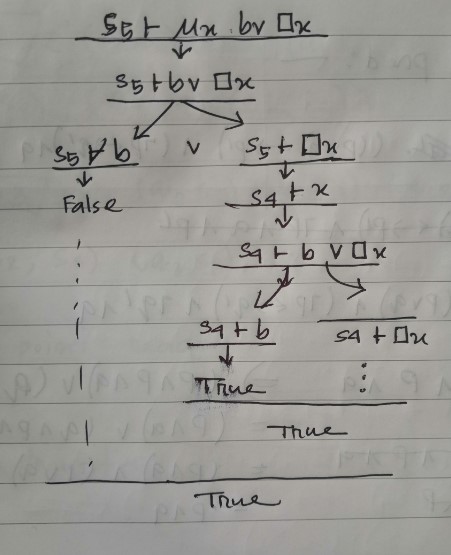 S5 ⊢ μx. b∨ □x
S5 ⊢ b∨ □x
S5 ⊬ b ∨ S5 ⊢ □x
False S4 ⊢ x
S4 ⊢ b ∨ □x
S4 ⊢ b S4 ⊢ □x
True ⋮
True
True